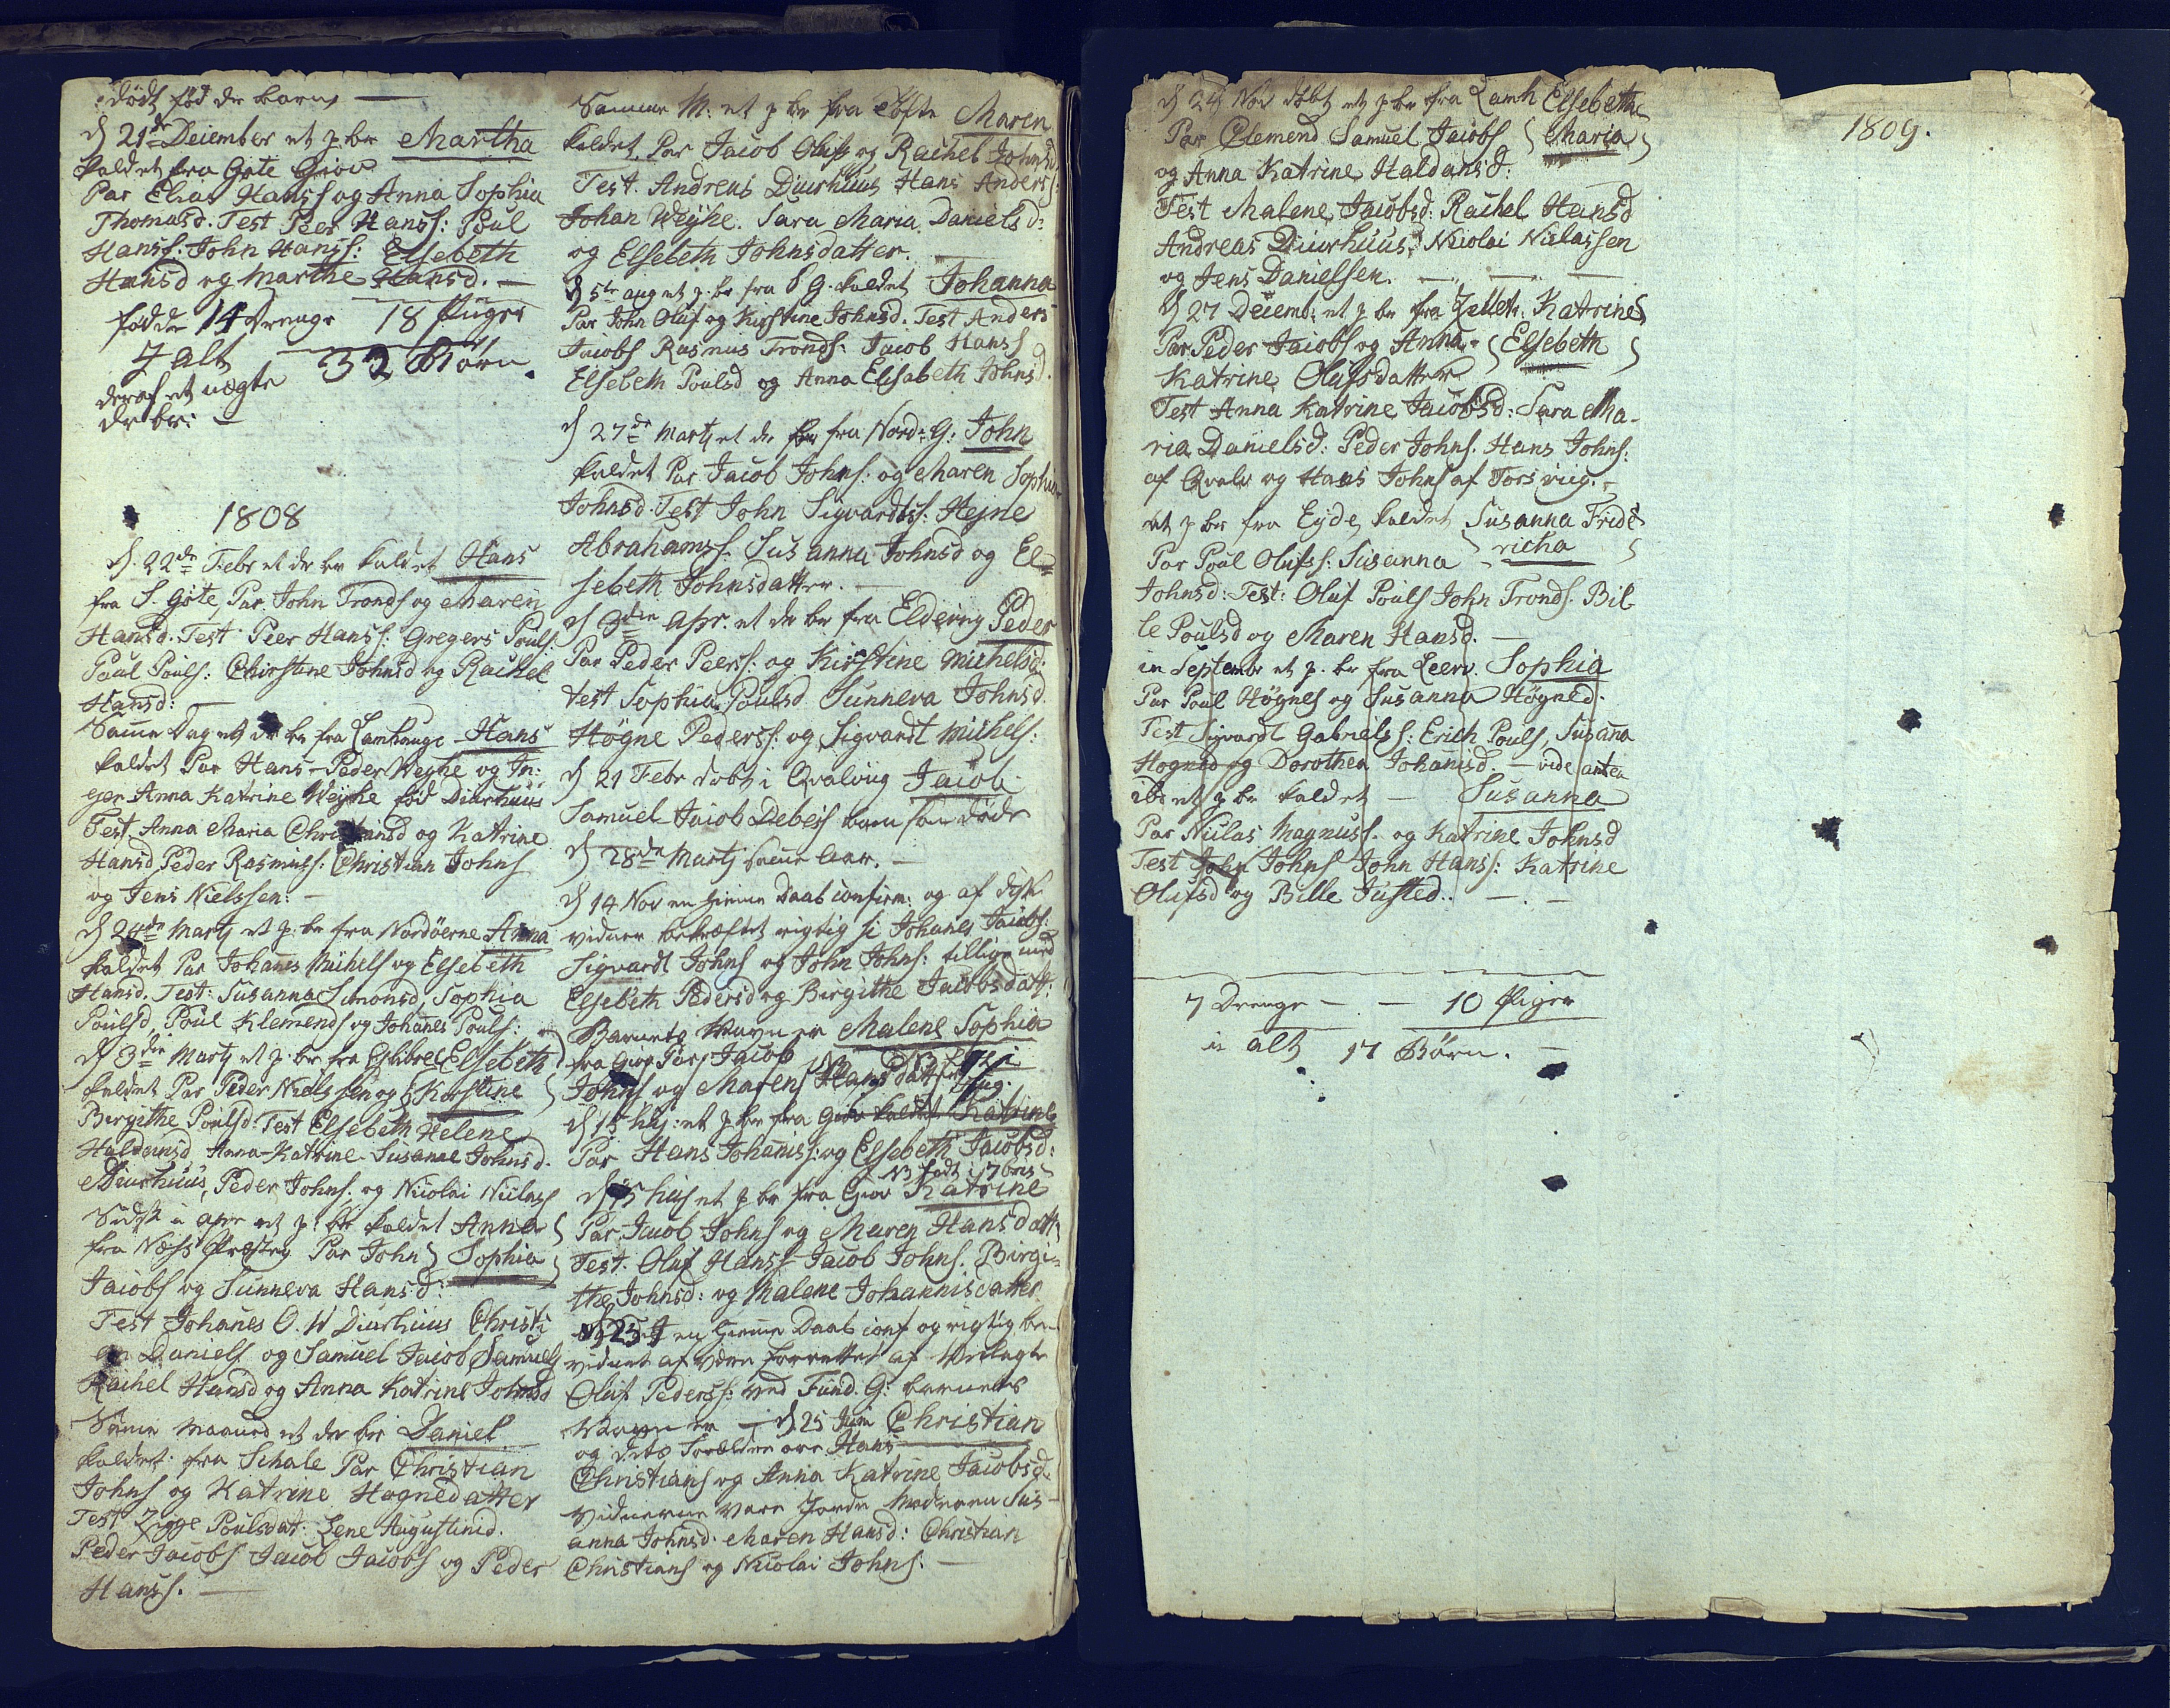 dödt fød dr barn —
d 21de December et p. br Martha
kaldet fra Gote Giov
Par Elias Hanss og Anna Sophia
Thomasd. Test Peer Hanss: Poul
Hanss: John Hanss: Elsebeth
Hansd og Marthe Hansd. —
födde 14 Drenge 18 Piiger
I alt 32 Börn.
deraf et uægte
dr br: —
1808
d. 22de Febr et dr br kaldet Hans
fra S. Göte, Par. John Tronds og Maren
Hansd. Test Peer Hanss: Gregers Pouls:
Poul Pouls: Chirstine Johnsd og Rachel
Hansd: —
Samme Dag et dr br fra Lamhauge Hans
kaldet Par Hans Peder Weyhe og In:
ger Anna Katrine Weyhe fød Diurhuus
Test Anna Maria Christiansd og Katrine
Hansd Peder Rasmuss: Christian Johns
og Jens Nielssen: —
d 24de Martj et p. br fra Nordöerne Anna
kaldet Par Johanes Michels og Elsebeth
Hansd. Test: Susanna Simonsd, Sophia
Poulsd, Poul Klemends og Johanes Pouls:
d 3die Martj et p. br fra Glibre Elsebeth
kaldet Par Peder Nielssen og Kirstine
Birgithe Poulsd. Test Elsebeth Helene
Haldansd Anna Katrine Susanne Johnsd.
Diurhuus, Peder Johns. og Nicolai Niclass
Sidst i apr et p. br kaldet Anna
fra Næss Præsteg Par John Sophia
Jacobs og Sunneva Hansd:
Test Johanes O. W Diurhuus Christi
an Daniels og Samuel Jacob Samuels
Rachel Hansd og Anna Katrine Johnsd
Samme Maaned et dr br Daniel
kaldet fra Schale Par Christian
Johns og Katrine Hognedatter
Test Zigge Poulsdat: Lene Augustinid.
Peder Jacobs Jacob Jacobs og Peder
Hanss. —
Samme M: et p br fra Tofte Maren
kaldet. Par Jacob Olufs og Rachel Johnsd
Test. Andreas Diurhuus Hans Anders:
Johan Weyhe. Sara Maria Danielsd:
og Elsebeth Johnsdatter. —
d 5te aug et p. br fra S G. kaldet Johanna
Par John Oluf og Kirstine Johnsd. Test Anders
Jacobs Rasmus Tronds: Jacob Hanss
Elsebeth Poulsd og Anna Elisabeth Johnsd.
d 27de Martj et dr br fra Nord: G: John
kaldet Par Jacob Johns: og Maren Sophia
Johnsd. Test John Sigvardtss: Hejne
Abrahamss Susanna Johnsd og El=
sebeth Johnsdatter. —
d 3die Apr. et dr br fra Eldevig Peder
Par Peder Peerss: og Kirstine Michelsd:
test Sophia Poulsd Sunneva Johnsd
Högne Pederss: og Sigvardt Michels:
d 21 Febr döbt i Qvalvüg Jacob
Samuel Jacob Debess barn som döde
d 28de Martj samme Aar. —
d 14 Nov en Hiemme Daab confirm: og af diße
vidner bekræftet rigtig si Johanes Jacobs:
Sigvardt Johns og John Johns: tillige med
Elsebeth Pedersd og Birgithe Jacobsdatt:
Barnets Navn er Malene Sophia
fra Giov Par Jacob
Johns og Marens Hansdatter
d 15 huj: et p br fra Giov kaldet Katrine
Par Hans Johaniss: og Elsebeth Jacobsd:
NB födt i 7bris
d 15 huj et p br fra Giov Katrine
Par. Jacob Johns og Maren Hansdatt:
Test. Oluf Hanss Jacob Johns. Birgi=
the Johnsd: og Malene Johannisdatter
en Hiemme Daab conf og rigtig be
vidnet af være forrettet af Velagte
Oluf Pederss: ved Fund. G: barnets
Navn er — d 25 Juni Christian
og dets Forældre ere Hans
Christians og Anna Katrine Jacobsd.
vidnerne vare Jorde Moderen Sus
anna Johnsd. Maren Hansd: Christian
Christians og Nicolai Johns. —
d 24 Nov döbt et p br fra Lamh Elsebethe
Par Clemend Samuel Jacobs Maria
og Anna Katrine Haldansd:
Test Malene Jacobsd: Rachel Hansd
Andreas Diurhuus, Nicolai Niclassen
og Jens Danielsen. —
d 27 Decemb: et p br fra Zellet. Katrine
Par. Peder Jacobs og Anna Elsebeth
Katrine Olufsdatter
Test Anna Katrine Jacobsd: Sara Ma-
ria Danielsd: Peder Johns. Hans Johns:
af Qvalv og Hans Johns af Torsvüg. —
et p br fra Eyde, kaldet Susanna Fride
Par Poul Olufss: Susanna richa
Johnsd: Test: Oluf Pouls John Tronds. Bil-
le Poulsd og Maren Hansd. —
in Septembr et p. br fra Leerv. Sophia
Par Poul Högnes og Susanna Högned.
Test Sigvardt Gabrielss: Erich Pouls, Susanna
Hogned og Dorothea Johanisd. — vide antea
ibd et p br kaldet — Susanna
Par Niclas Magnuss. og Katrine Johnsd
Test John Johns John Hanss: Katrine
Olufsd og Bille Justed. —
7 Drenge — — 10 Piger
in alt 17 Börn. —
1809.